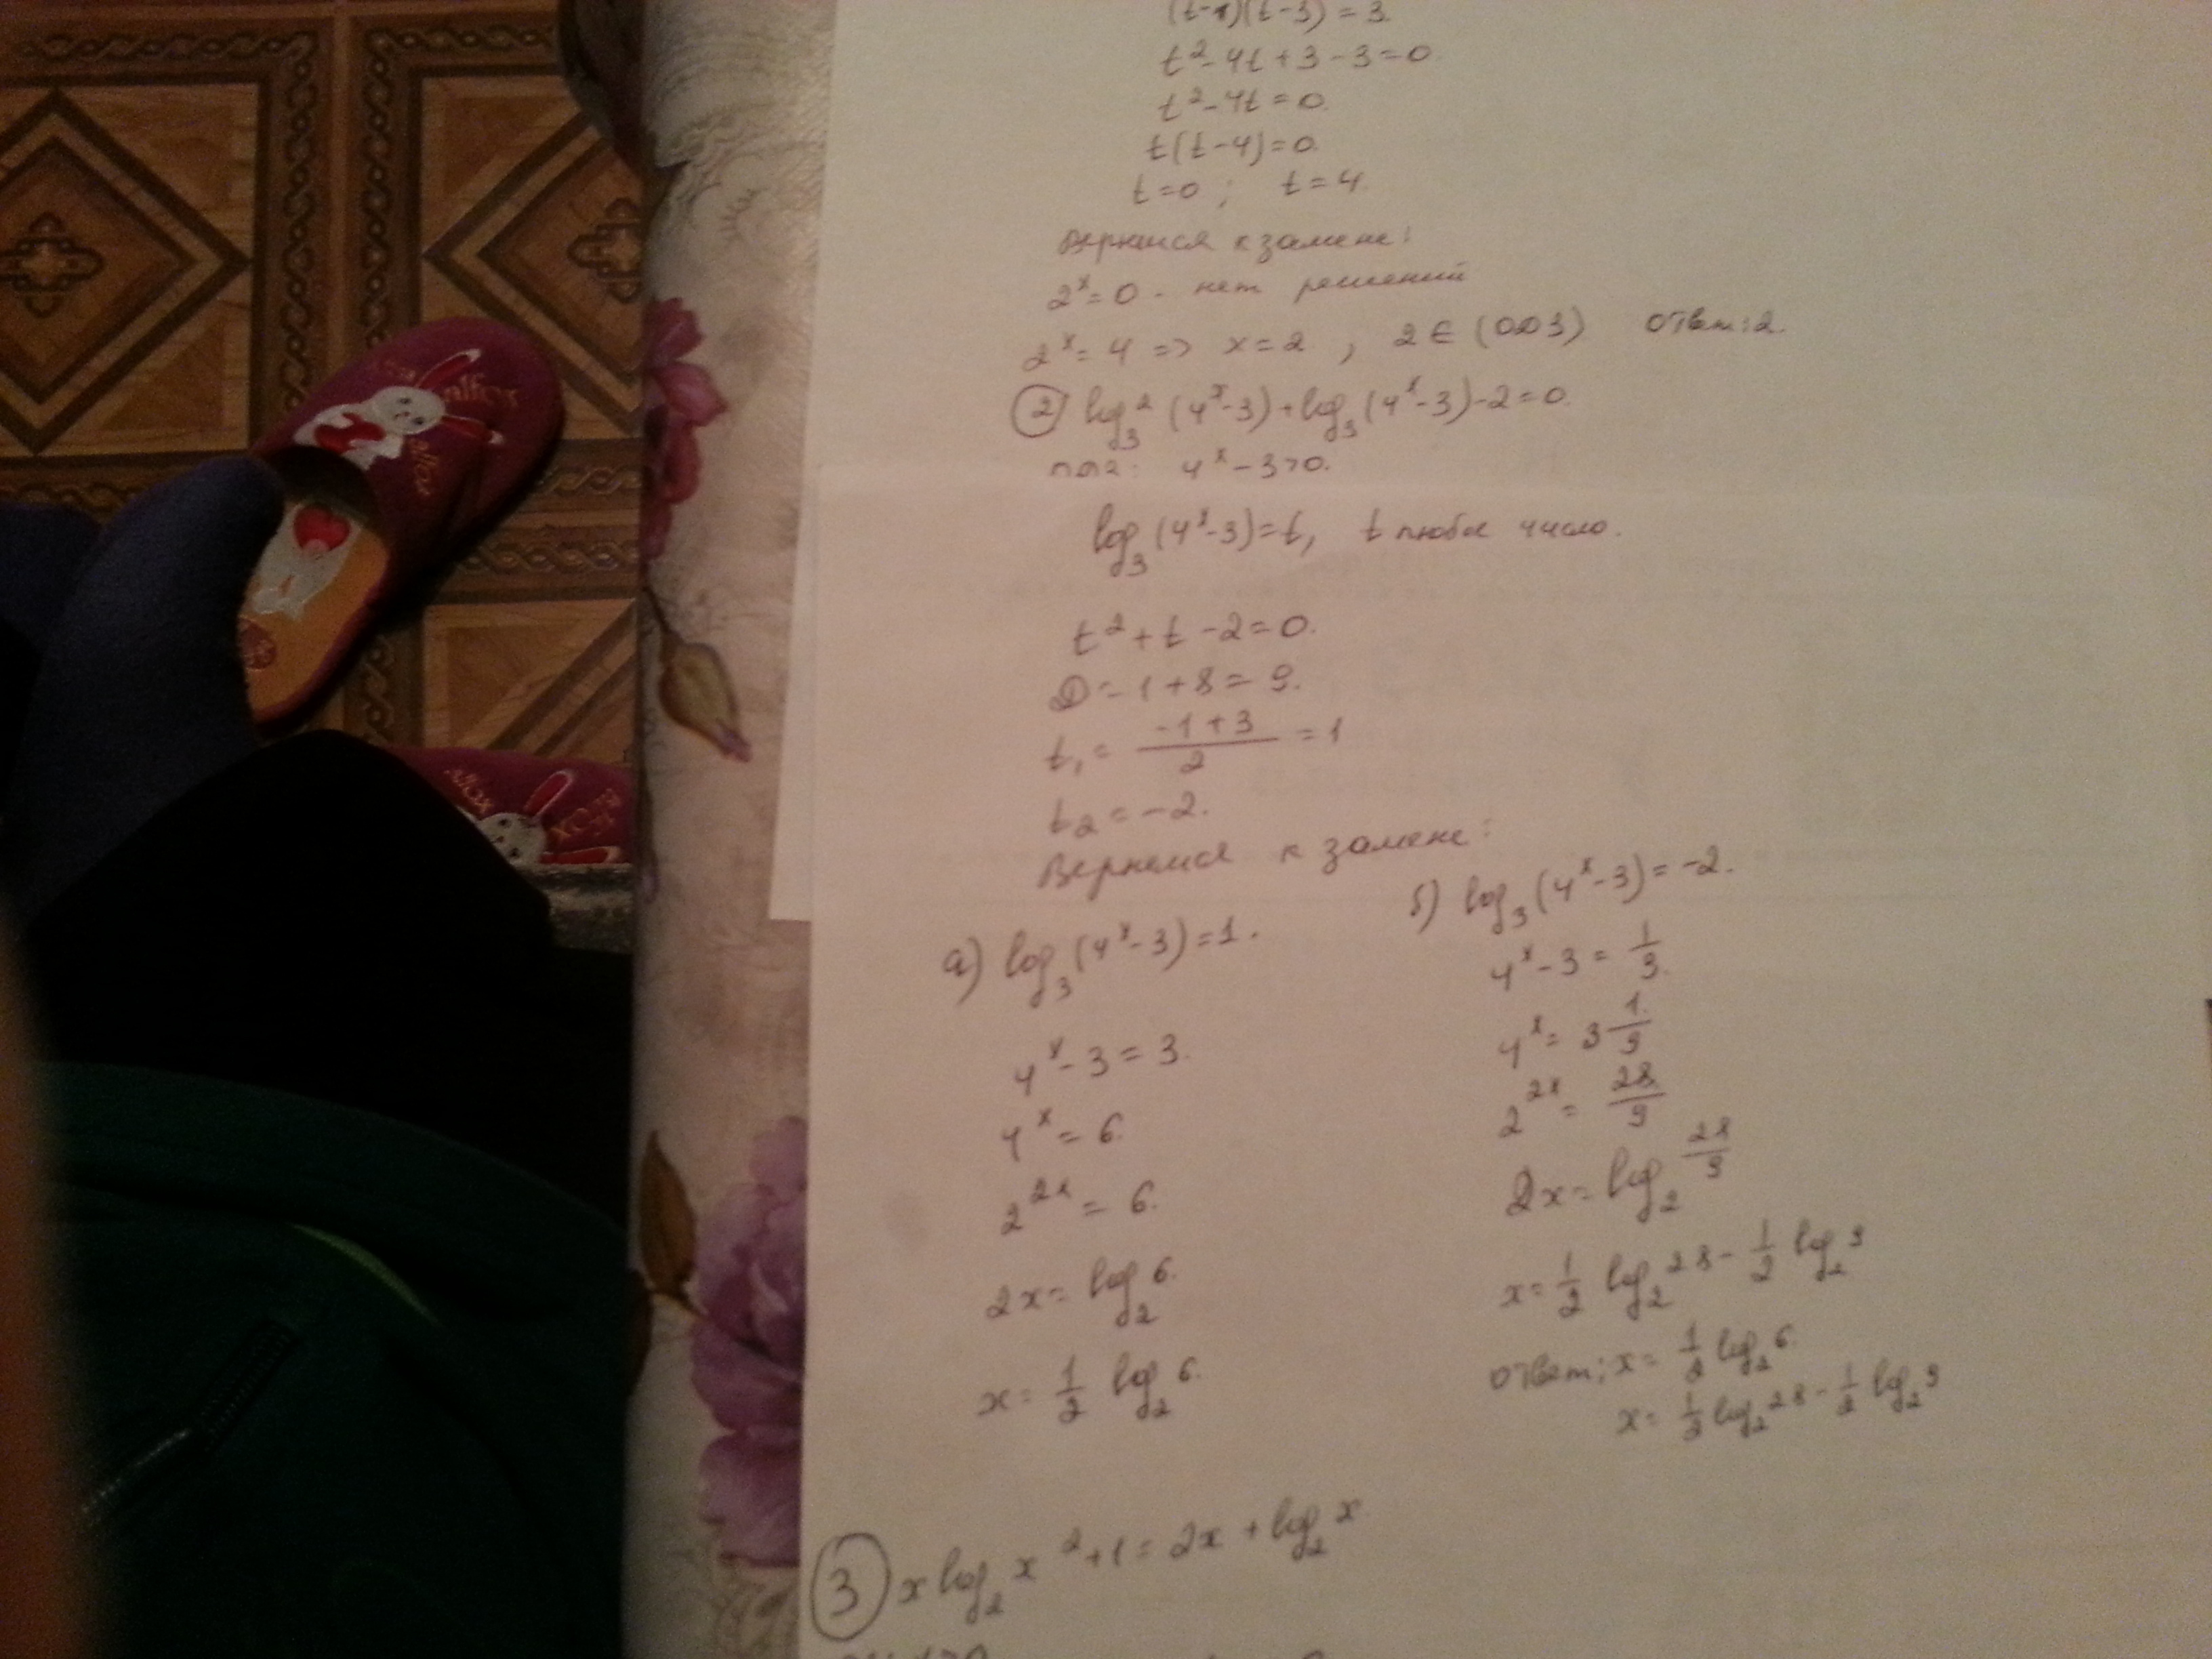 (t-1)(t-3) = 3.
t²-4t+3-3=0
t²-4t=0.
t(t-4)=0.
t=0; t=4.
Вернемся к замене:
2ˣ=0 - нет решений
2ˣ=4 => x=2, 2 ∈ (ОДЗ) Ответ: 2.
② log₃²(4ˣ-3)+log₃(4ˣ-3)-2=0.
4ˣ-3>0.
log₃(4ˣ-3)=t, t любое число.
t²+t-2=0.
D=1+8=9.
t₁= (-1+3)/2 =1
t₂=-2.
Вернемся к замене:
а) log₃(4ˣ-3)=1.
4ˣ-3=3.
4ˣ=6.
2²ˣ=6.
2x=log₂6.
x=1/2 log₂6.
б) log₃(4ˣ-3)=-2.
4ˣ-3=1/3.
4ˣ=3 1/9
2²ˣ=28/9
2x=log₂ 28/9
x=1/2 log₂28-1/2 log₂9
Ответ: x=1/2 log₂6.
x=1/2 log₂28-1/2 log₂9
③ x log₂x²+1=2x+log₂x
alfox
alfox
alfox
alfox